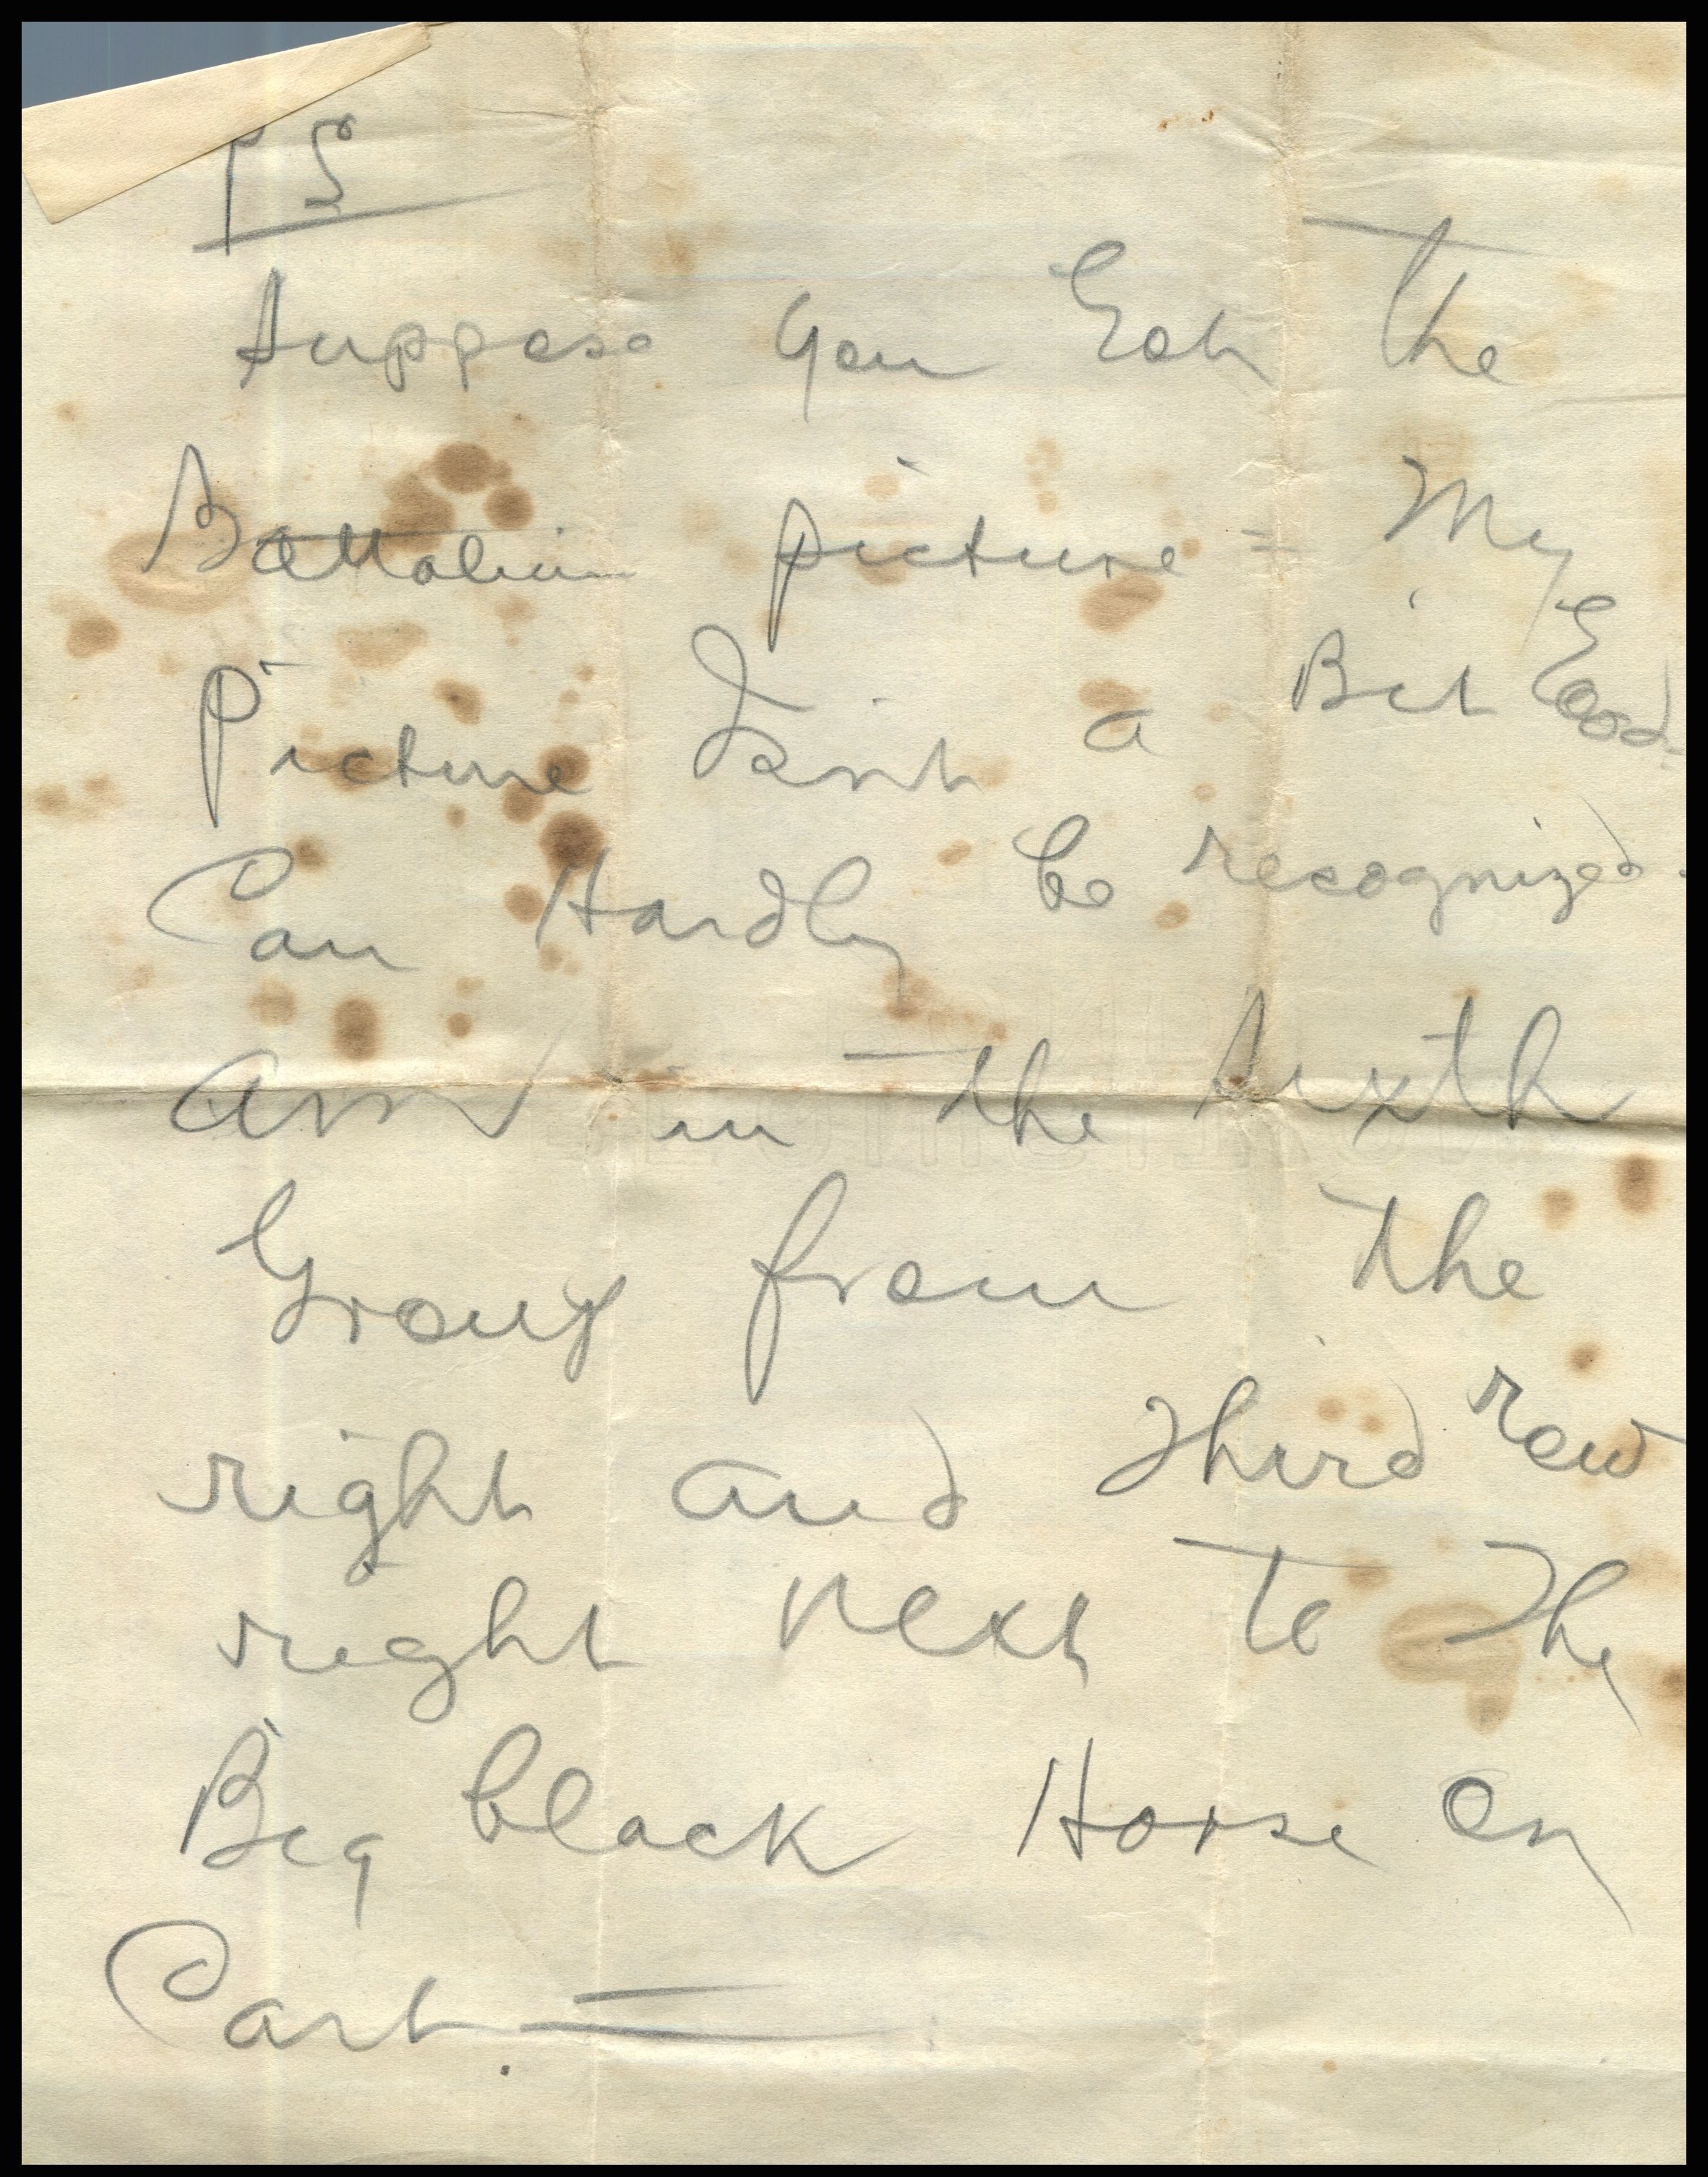 PS
Suppose you Got the
Battalion picture = My
Picture Isnt a Bit Good-
Can Hardly be recognized.
Am in the sixth
Group from the
right and Third row
right next to The
Big black Horse on
Cart.